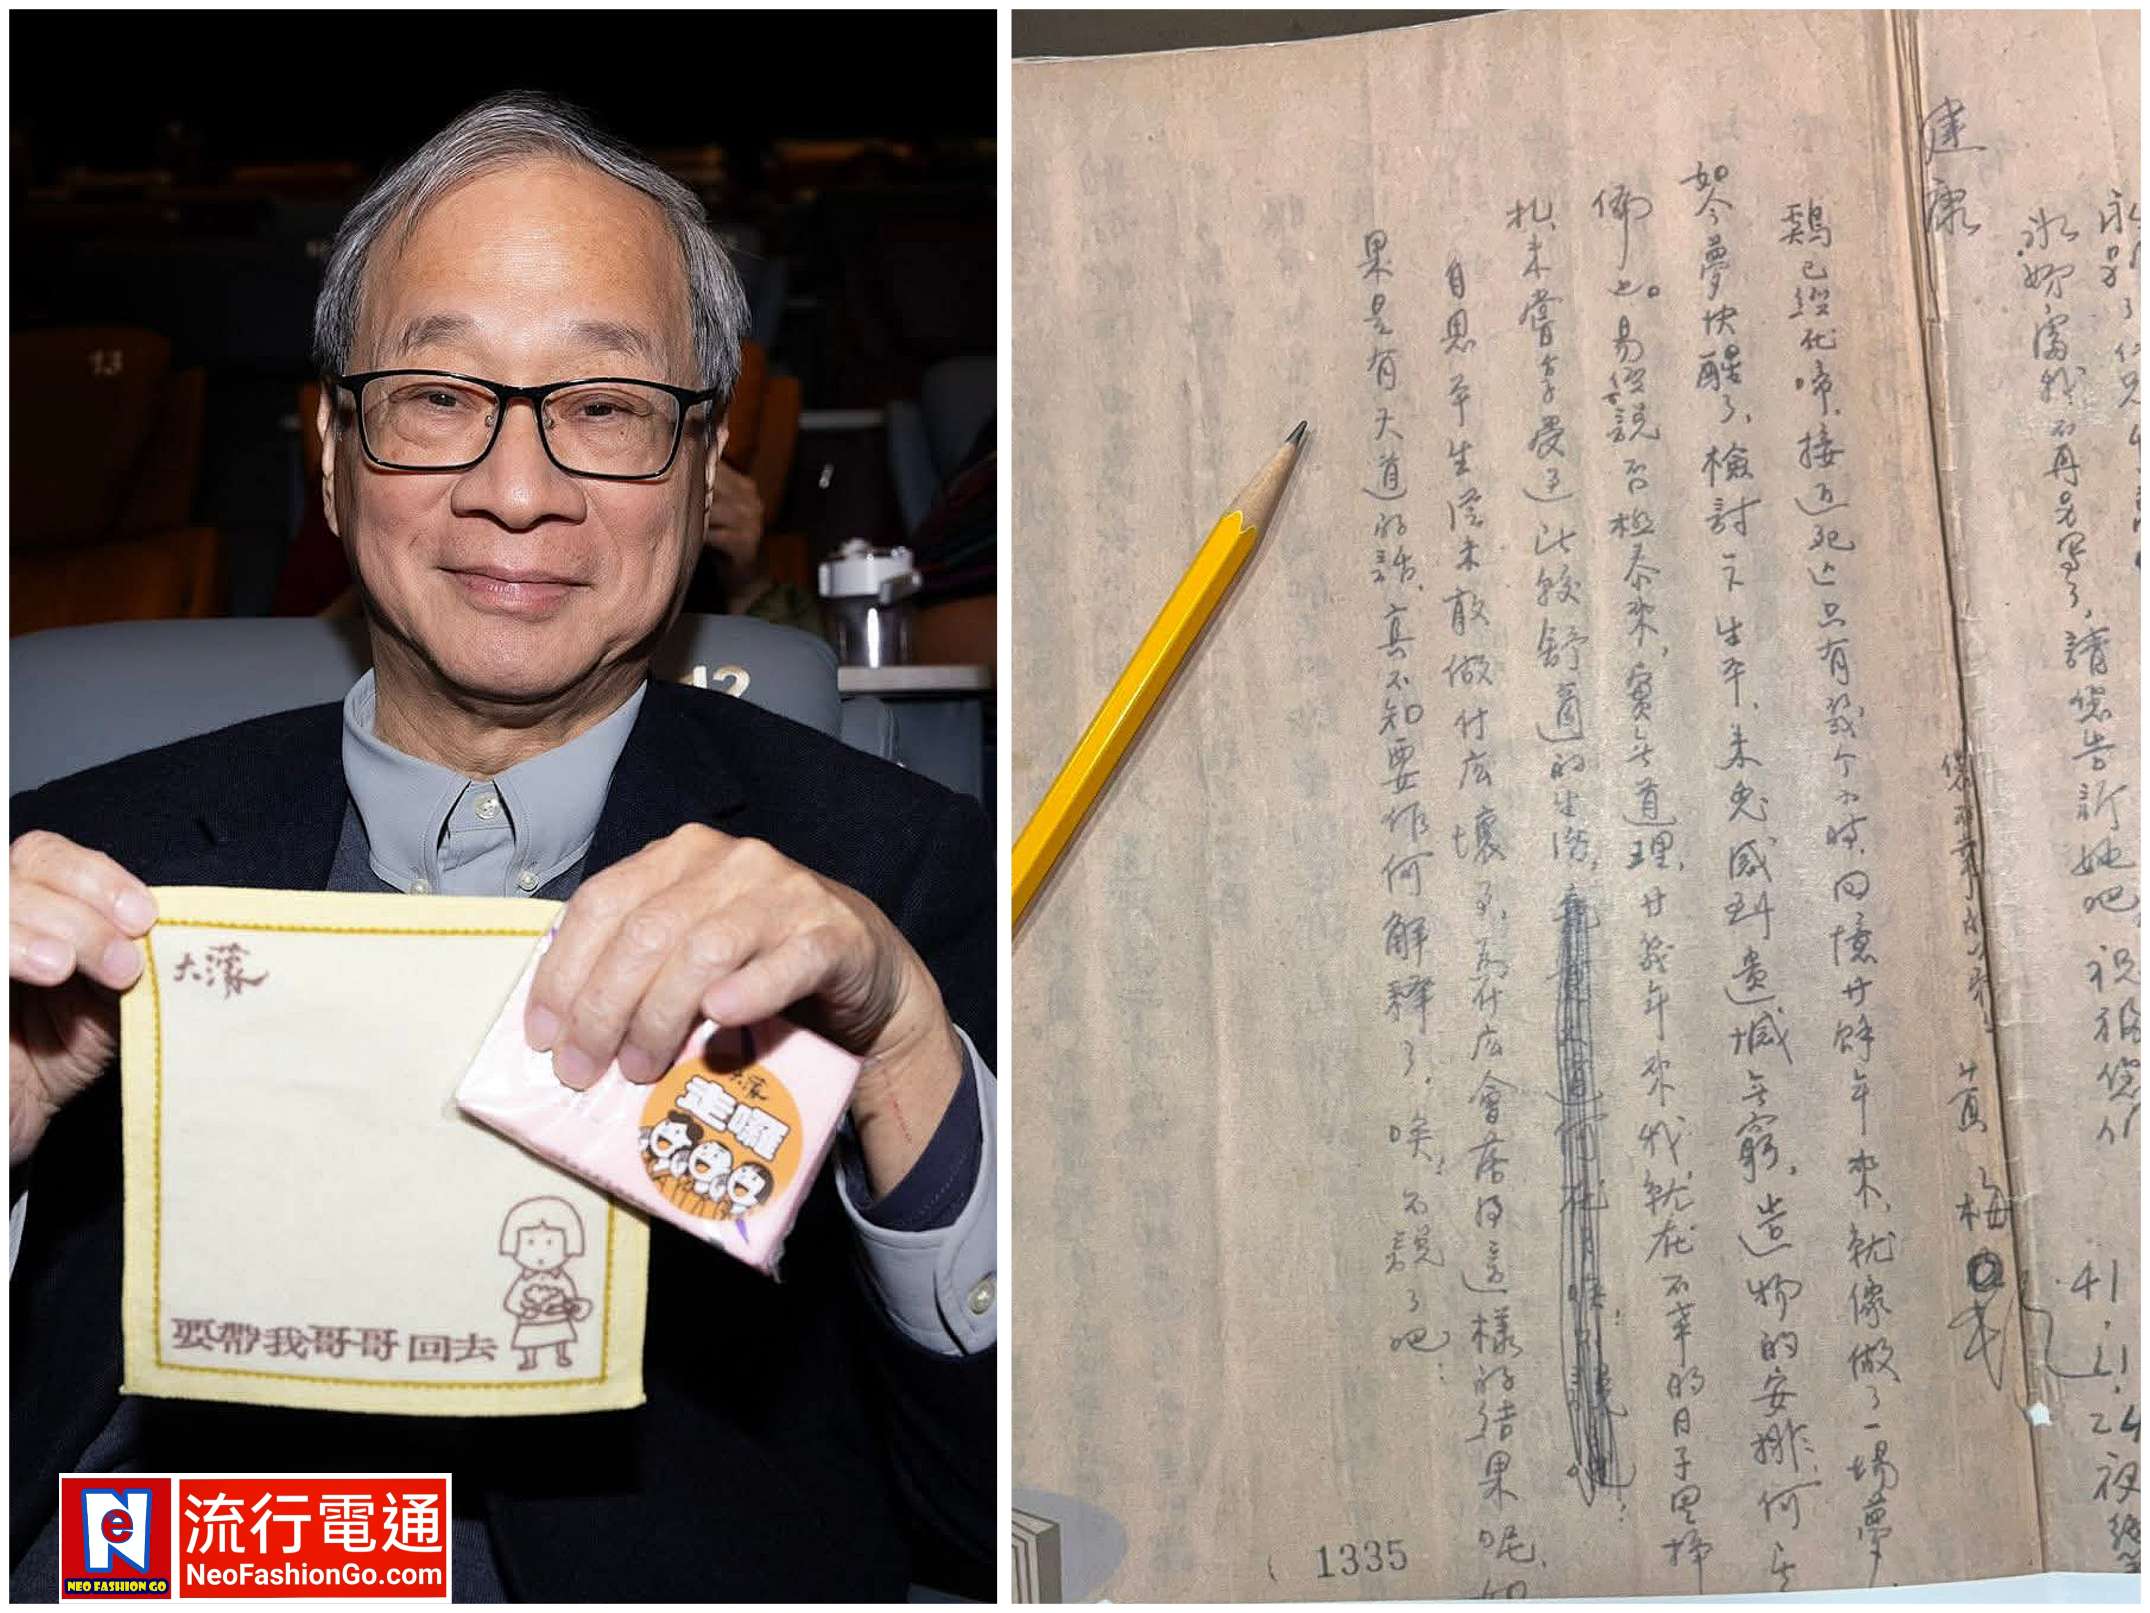 13
12
大濛
要帶我哥哥回去
大濛
走囉
Ne
NEO FASHION GO
流行電通
NeoFashionGo.com
不再另寫了,請您告訴她吧,祝福您们
41.11.24夜
建康
黃梅
鷄已經在啼,接近死亡只有幾个小時,回憶廿餘年來,就像做了一場夢,
如今夢快醒了,檢討一下生平,未免感到遺憾無窮,造物的安排,何其
也。易經說否極泰來,實無道理,廿幾年來我就在不幸的日子里掙
扎,未嘗享受过比較舒適的生活,
自思平生從未敢做什庅壞事,為什庅會落得這樣的結果呢,如
果是有天道的話,真不知要作何解釋了,唉!不說了吧!
1335